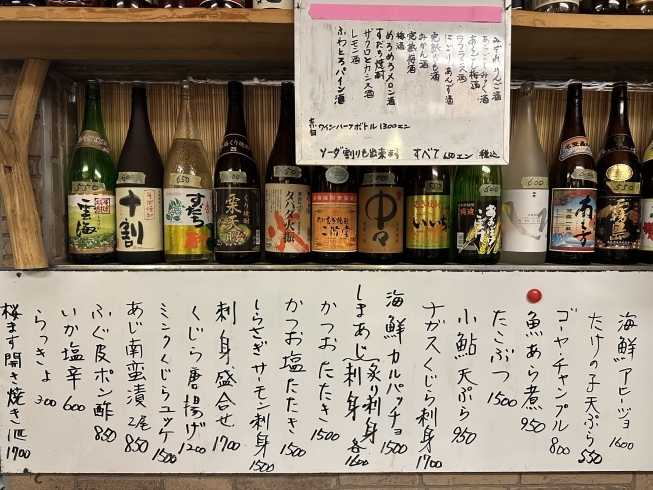 みぞれりんご酒
あらごしみかん酒
あらごし梅酒
ラフランス酒
にごりあんず酒
完熟もも酒
おかん酒
完熟梅酒
梅酒
めろめろメロン酒
すだち焼酎
ザクロとカシス酒
レモン酒
ふわとろパイン酒
赤白 ワインハーフボトル 1300エン
ソーダ割りも出来ます すべて 650エン 税込
雲海
十割
600
すだち
栗焼酎
550
タバタ火振
二階堂
中々
600
いいち
650
600
550
海鮮アヒージョ 1600
たけの子天ぷら 550
ゴーヤ・チャンプル 800
魚あら煮 950
たこぶつ 1500
小鮎天ぷら 950
ナガスくじら刺身 1700
海鮮カルパッチョ 1500
しまあじ 炙り刺身 刺身 各1600
かつおたたき 1500
かつお塩たたき 1500
しらさぎサーモン刺身 1500
刺身盛合せ 1700
くじら唐揚げ 1200
ミンクくじらユッケ 1500
あじ南蛮漬 2尾 850
ふぐ皮ポン酢 850
いか塩辛 600
らっきょ 300
桜ます開き焼き 1匹 1700